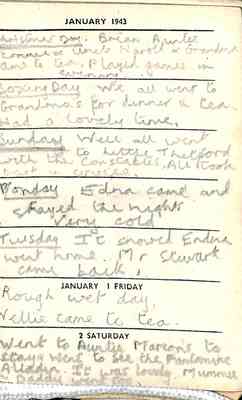 JANUARY 1943
Day. Brian Auntie
Uncle Harold & Grandma
to tea. Played games in
evening
Boxing Day We all went to
Grandma's for dinner & tea.
Had a lovely time.
Sunday Well all went
to Thetford
with the Constables. All took
part in
Monday Edna came and
stayed the night
very cold
Tuesday It snowed Endna
went home. Mr Stewart
came back.
JANUARY 1 FRIDAY
Rough wet day.
Nellie came to tea.
2 SATURDAY
Went to Auntie Marion's to
stay. Went to see the Pantomine
Aladin. It was lovely. Mummie
Daddy